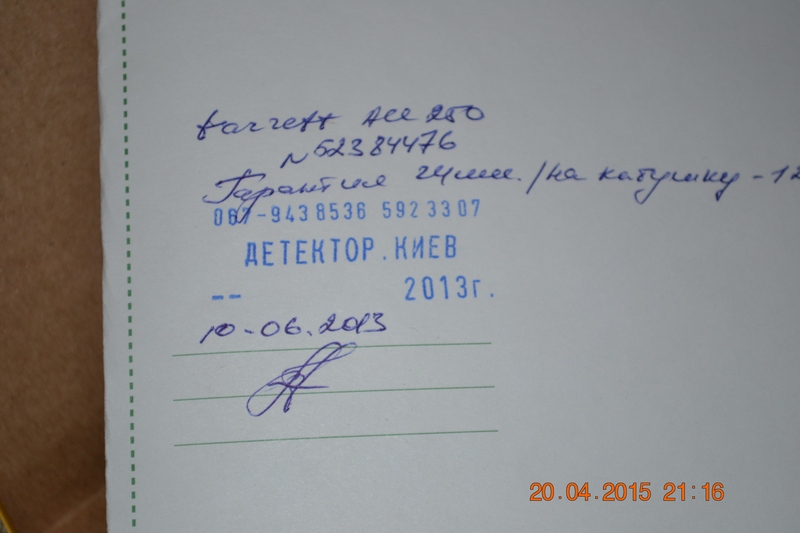 Garrett Ace 250
N 52384476
Гарантия 24мес. /на катушку - 12
067-9438536 5923307
ДЕТЕКТОР.КИЕВ
-- 2013г.
10-06.2013
20.04.2015 21:16